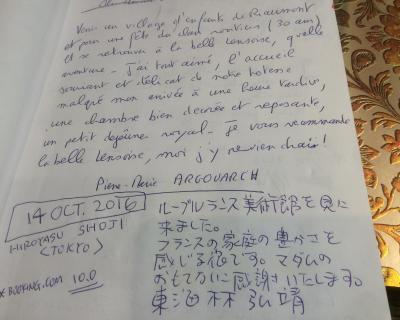 Venir un village d'enfants de Riaumont
et pour une fête du clan routiers (30 ans)
et se retrouver à la belle Lensoise, quelle
aventure - j'ai tout aimé, l'accueil
souriant et délicat de notre hôtesse
malgré mon arrivée à une heure tardive,
une chambre bien décorée et reposante,
un petit déjeuner royal - Je vous recommande
la belle Lensoise, moi j'y reviendrai!
Pierre-Marie ARGOUARCH
14 OCT. 2016
HIROYASU SHOJI
<TOKYO>
*BOOKING.COM 10.0
ルーブルランス美術館を見に
来ました。
フランスの家庭の豊かさを
感じる宿です。マダムの
おもてなしに感謝いたします。
東海林 弘靖